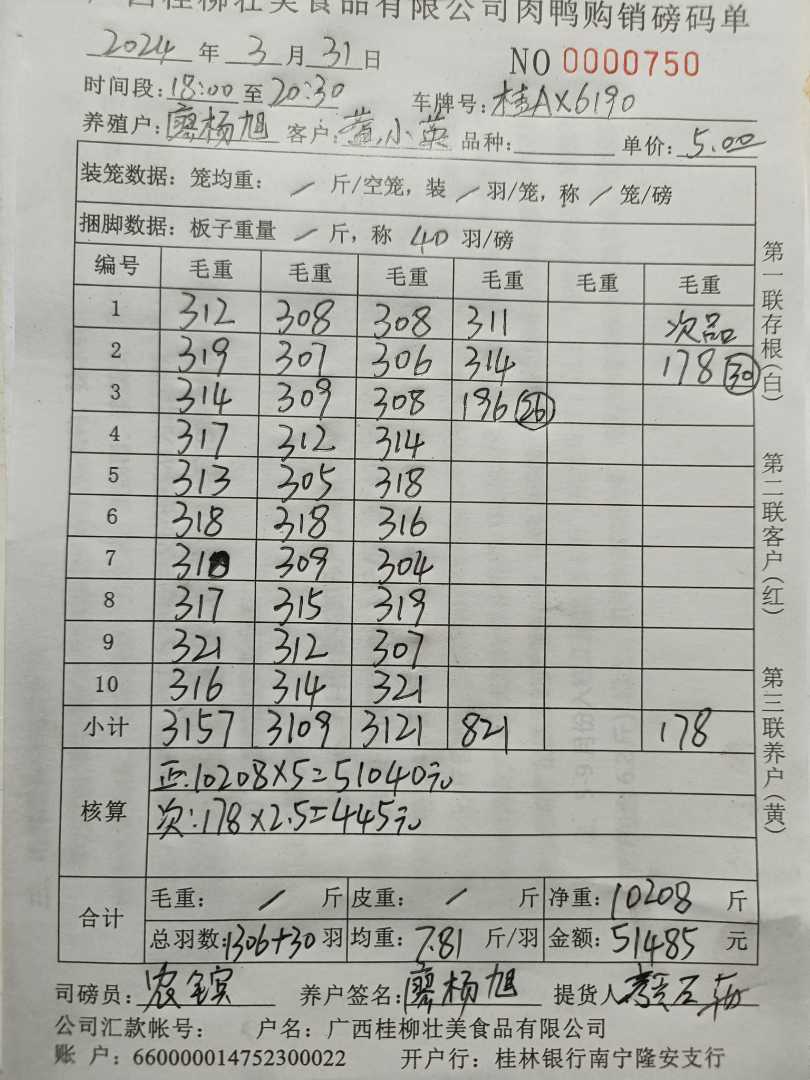 广西桂柳壮美食品有限公司肉鸭购销磅码单
2024 年 3 月 31 日 NO 0000750
时间段: 18:00 至 20:30 车牌号: 桂AX6190
养殖户: 廖杨旭 客户: 黄小英 品种: 单价: 5.00
装笼数据: 笼均重: / 斤/空笼, 装 / 羽/笼, 称 / 笼/磅
捆脚数据: 板子重量 / 斤, 称 40 羽/磅
编号 毛重 毛重 毛重 毛重 毛重 毛重
1 312 308 308 311 次品
2 319 307 306 314 178 30
3 314 309 308 196 26
4 317 312 314
5 313 305 318
6 318 318 316
7 310 309 304
8 317 315 319
9 321 312 307
10 316 314 321
小计 3157 3109 3121 821 178
核算 正:10208×5=51040元
次:178×2.5=445元
合计 毛重: / 斤 皮重: / 斤 净重: 10208 斤
总羽数: 1306+30 羽 均重: 7.81 斤/羽 金额: 51485 元
司磅员: 农 养户签名: 廖杨旭 提货人
公司汇款帐号: 户名: 广西桂柳壮美食品有限公司
账 户: 660000014752300022 开户行: 桂林银行南宁隆安支行
第一联存根(白)
第二联客户(红)
第三联养户(黄)